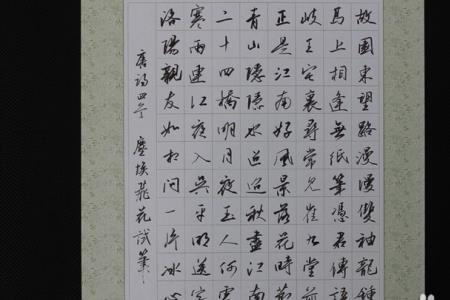 故園東望路漫漫雙袖龍鍾
馬上相逢無紙筆憑君傳語
岐王宅裏尋常見崔九堂前
正是江南好風景落花時節
青山隱隱水迢迢秋盡江南
二十四橋明月夜玉人何處
寒雨連江夜入吳平明送客
洛陽親友如相問一片冰心
唐詩四首 塵埃飛花試筆